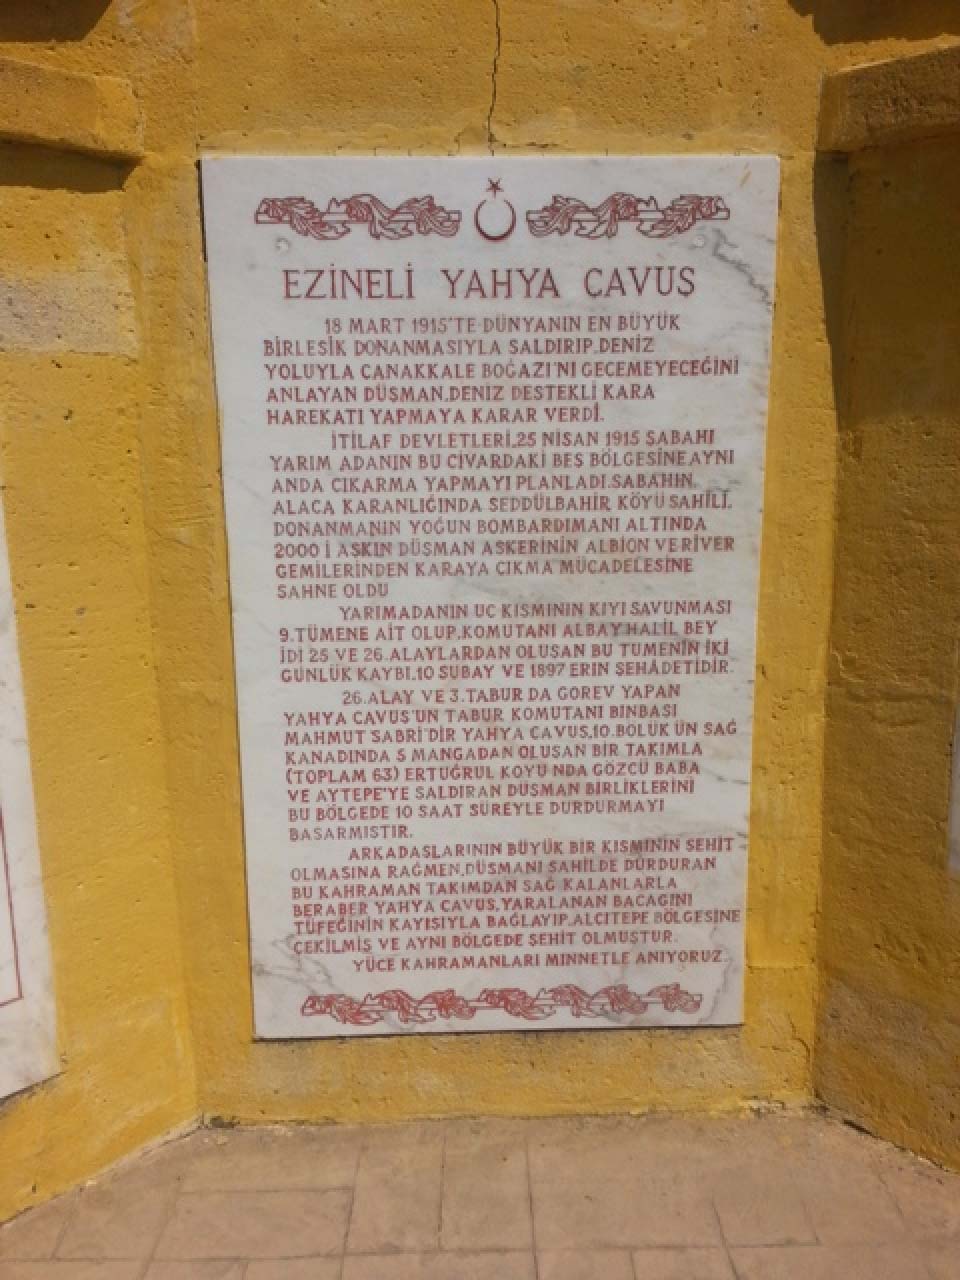 EZİNELİ YAHYA ÇAVUŞ
18 MART 1915'TE DÜNYANIN EN BÜYÜK
BİRLEŞİK DONANMASIYLA SALDIRIP,DENİZ
YOLUYLA ÇANAKKALE BOĞAZI'NI GEÇEMEYECEĞİNİ
ANLAYAN DÜŞMAN,DENİZ DESTEKLİ KARA
HAREKATI YAPMAYA KARAR VERDİ.
İTİLAF DEVLETLERİ,25 NİSAN 1915 SABAHI
YARIM ADANIN BU CİVARDAKİ BEŞ BÖLGESİNE,AYNI
ANDA ÇIKARMA YAPMAYI PLANLADI.SABAHIN,
ALACA KARANLIĞINDA SEDDÜLBAHİR KÖYÜ SAHİLİ,
DONANMANIN YOĞUN BOMBARDIMANI ALTINDA
2000 İ AŞKIN DÜŞMAN ASKERİNİN ALBION VE RİVER
GEMİLERİNDEN KARAYA ÇIKMA MÜCADELESİNE
SAHNE OLDU
YARIMADANIN UÇ KISMININ KIYI SAVUNMASI
9.TÜMENE AİT OLUP,KOMUTANI ALBAY HALİL BEY
İDİ 25 VE 26.ALAYLARDAN OLUŞAN BU TÜMENİN İKİ
GÜNLÜK KAYBI,10 SUBAY VE 1897 ERİN ŞEHADETİDİR.
26.ALAY VE 3.TABUR DA GÖREV YAPAN
YAHYA ÇAVUŞ'UN TABUR KOMUTANI BİNBAŞI
MAHMUT SABRİ'DİR YAHYA ÇAVUŞ,10.BÖLÜK ÜN SAĞ
KANADINDA 5 MANGADAN OLUŞAN BİR TAKIMLA
(TOPLAM 63) ERTUĞRUL KOYU NDA GÖZCÜ BABA
VE AYTEPE'YE SALDIRAN DÜŞMAN BİRLİKLERİNİ
BU BÖLGEDE 10 SAAT SÜREYLE DURDURMAYI
BAŞARMIŞTIR.
ARKADAŞLARININ BÜYÜK BİR KISMININ ŞEHİT
OLMASINA RAĞMEN,DÜŞMANI SAHİLDE DURDURAN
BU KAHRAMAN TAKIMDAN SAĞ KALANLARLA
BERABER YAHYA ÇAVUŞ,YARALANAN BACAĞINI
TÜFEĞİNİN KAYIŞIYLA BAĞLAYIP,ALÇITEPE BÖLGESİNE
ÇEKİLMİŞ VE AYNI BÖLGEDE ŞEHİT OLMUŞTUR.
YÜCE KAHRAMANLARI MİNNETLE ANIYORUZ.